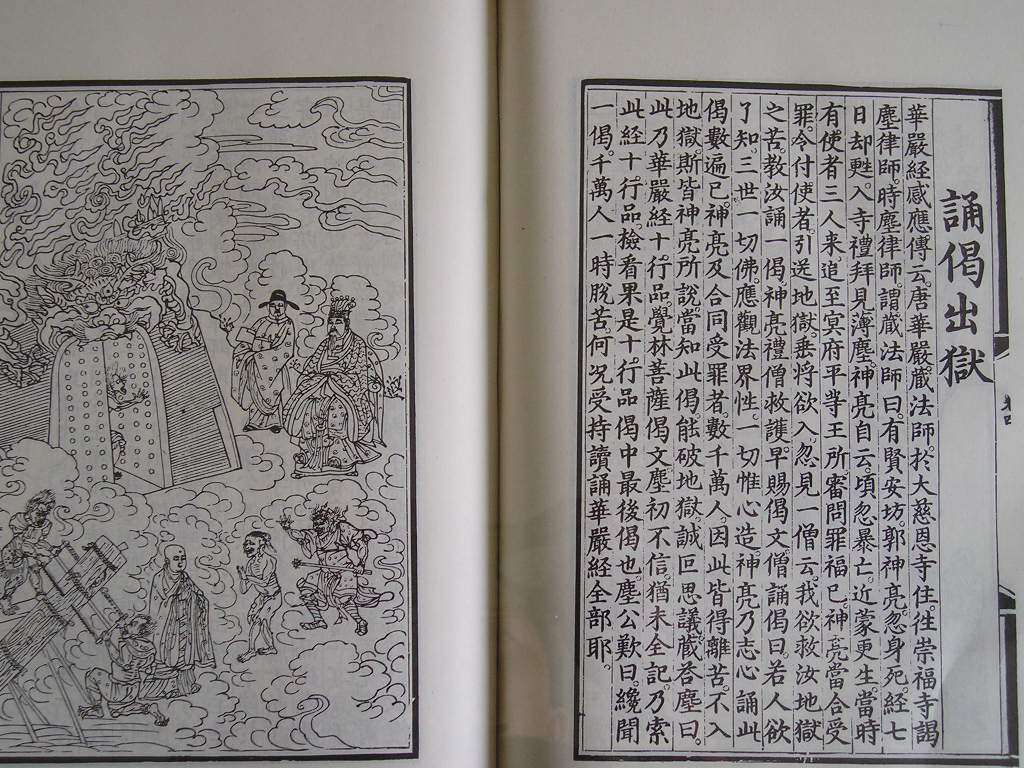 誦偈出獄
華嚴經感應傳云。唐華嚴藏法師。於大慈恩寺住。往崇福寺謁
塵律師。時塵律師。謂藏法師曰。有賢安坊。郭神亮。忽身死。經七
日却甦。入寺禮拜見薄塵。神亮自云。頃忽暴亡。近蒙更生。當時
有使者三人来。追至冥府平等王所。審問罪福已。神亮當合受
罪。令付使者。引送地獄。垂将欲入。忽見一僧云。我欲救汝地獄
之苦。教汝誦一偈。神亮禮僧救護。早賜偈文。僧誦偈曰。若人欲
了知。三世一切佛。應觀法界性。一切惟心造。神亮乃志心誦此
偈數遍已。神亮及合同受罪者。數千萬人。因此皆得離苦。不入
地獄斯皆神亮所說。當知此偈能破地獄。誠叵思議。藏荅塵曰。
此乃華嚴經十行品覺林菩薩偈文。塵初不信。猶未全記。乃索
此經十行品。檢看果是十行品偈中最後偈也。塵公歎曰。纔聞
一偈。千萬人一時脫苦。何况受持讀誦華嚴經全部耶。
卷四